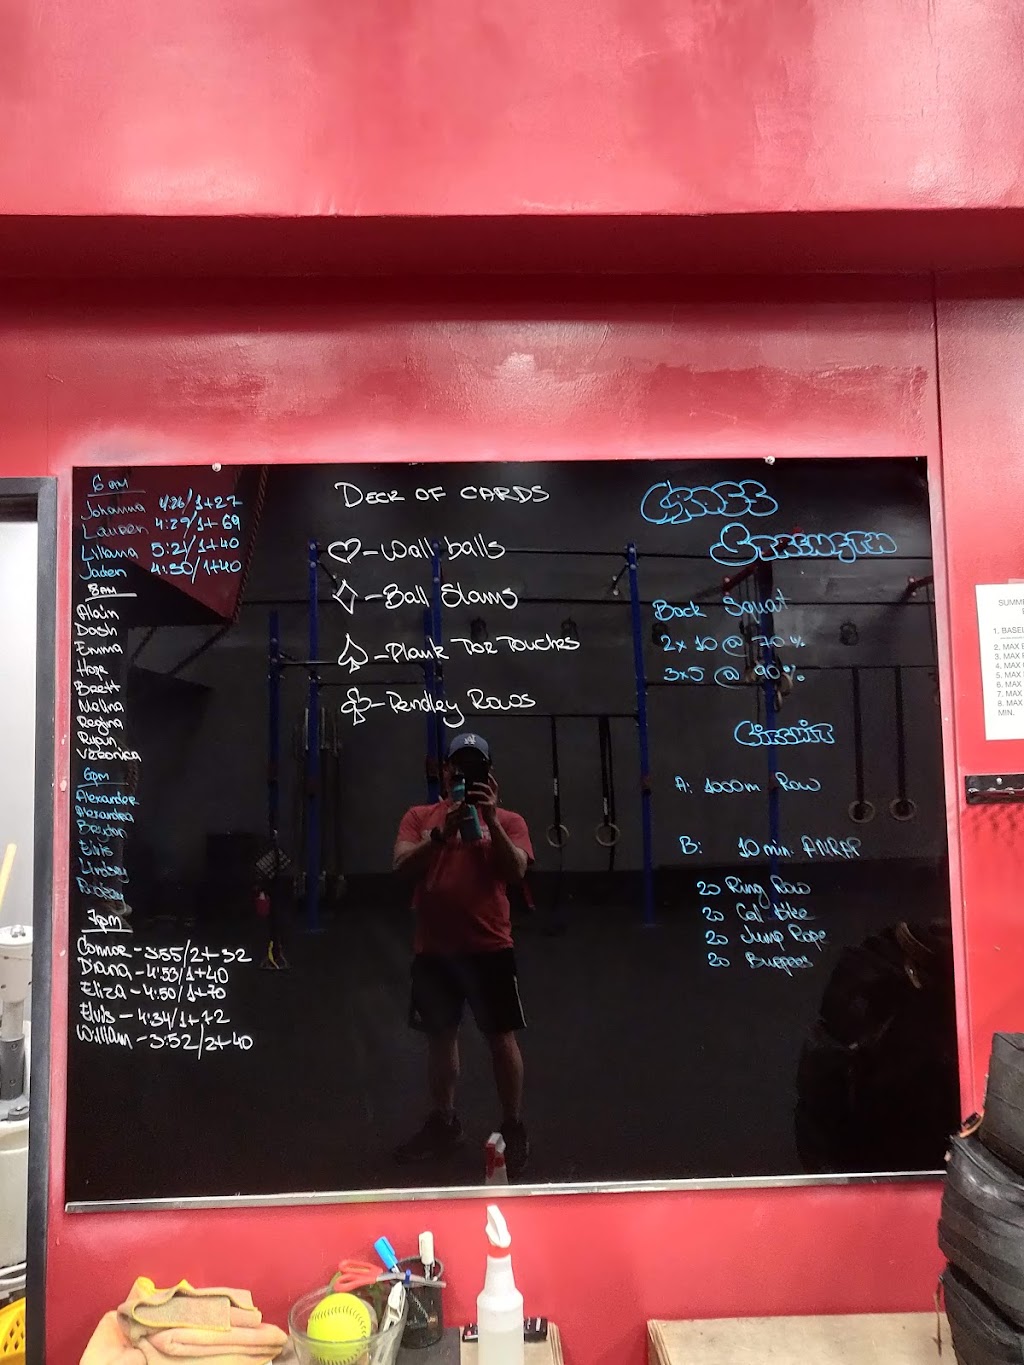 6am
Johanna 4:26/1+27
Lauren 4:29/1+69
Liliana 5:21/1+40
Jaden 4:50/1+40
8am
Alain
Dash
Emma
Hope
Brett
Melina
Regina
Ryan
Veronika
6pm
Alexander
Alexandra
Brydon
Elvis
Lindsey
7pm
Connor - 3:55/2+32
Diana - 4:53/1+40
Eliza - 4:50/1+70
Elvis - 4:34/1+72
William - 3:52/2+40
DECK OF CARDS
♡ - Wall balls
♢ - Ball Slams
♤ - Plank Toe Touches
♧ - Pendley Rows
CROSS
STRENGTH
Back Squat
2x10 @ 70%
3x5 @ 90%
CIRCUIT
A: 1000m Row
B: 10 min. AMRAP
20 Ring Row
20 Cal Bike
20 Jump Rope
20 Burpees
SUMME
1. BASEL
2. MAX
3. MAX
4. MAX
5. MAX
6. MAX
7. MAX
8. MAX
MIN.